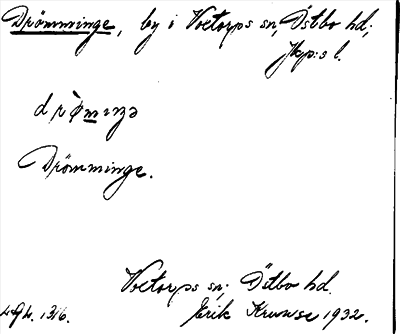 Drömminge, by i Voxtorps sn, Östbo hd;
Jkp:s l.
Drömminge.
Voxtorps sn; Östbo hd.
Erik Krunse 1932.